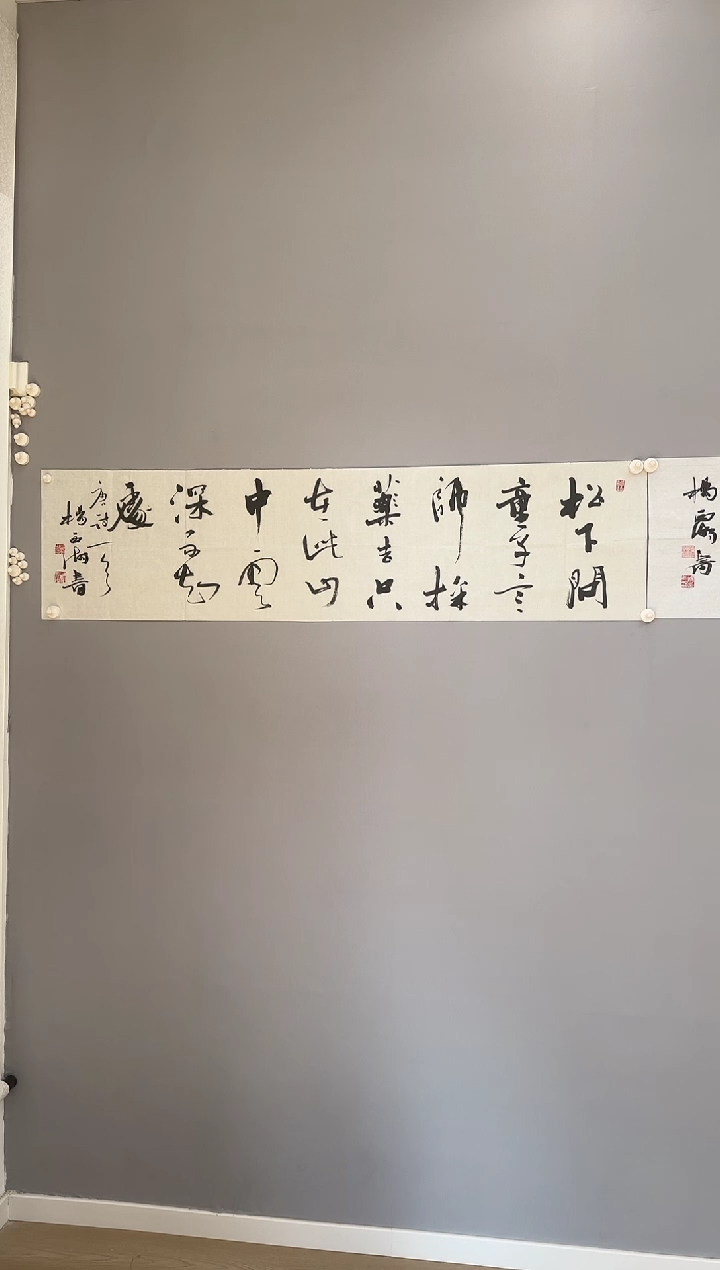 松下問
童子言
師採
藥去只
在此山
中雲
深不知
處
唐詩一首
楊
書
楊